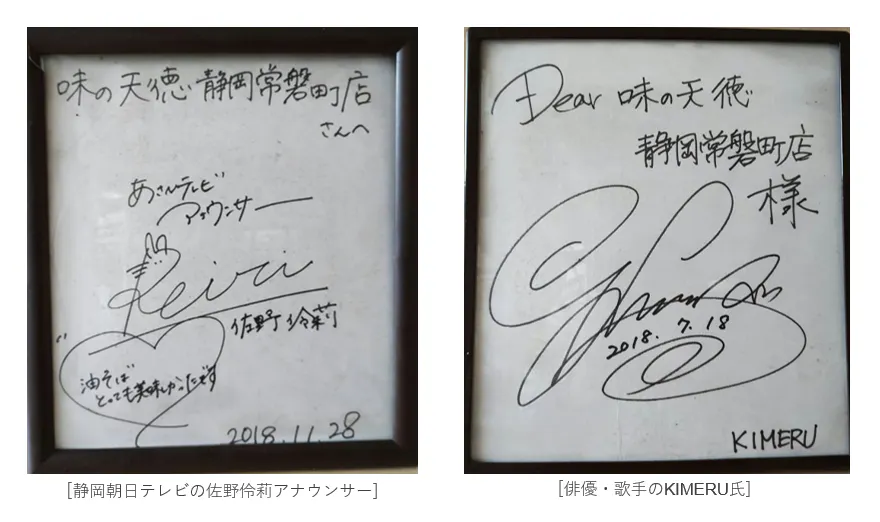 味の天徳 静岡常磐町店
さんへ
あさひテレビ
アナウンサー
Reiri
佐野 伶莉
油そば
とっても美味しかったです
2018.11.28
[静岡朝日テレビの佐野伶莉アナウンサー]
Dear 味の天徳
静岡常磐町店
様
2018.7.18
KIMERU
[俳優・歌手のKIMERU氏]